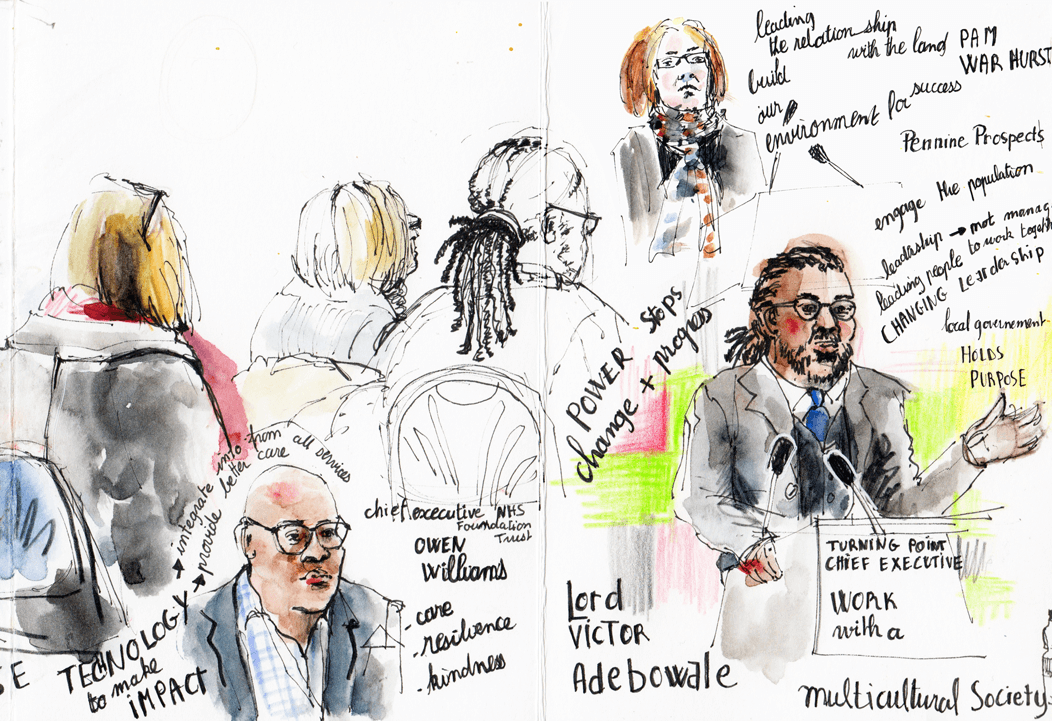 leading
the relationship
with the land
build
our
environment for success
PAM
WARHURST
Pennine Prospects
engage the population
leadership → not manag
leading people to work togeth
CHANGING LeaderShip
local governement
HOLDS
PURPOSE
POWER Stops
change + progress
from all services
integrate into
provide better care
TECHNOLOGY
to make
iMPACT
SE
chief executive NHS
Foundation
Trust
OWEN
Williams
- care
- resilience
- kindness
Lord
VICTOR
Adebowale
TURNING POINT
CHIEF EXECUTIVE
WORK
with a
multicultural Society